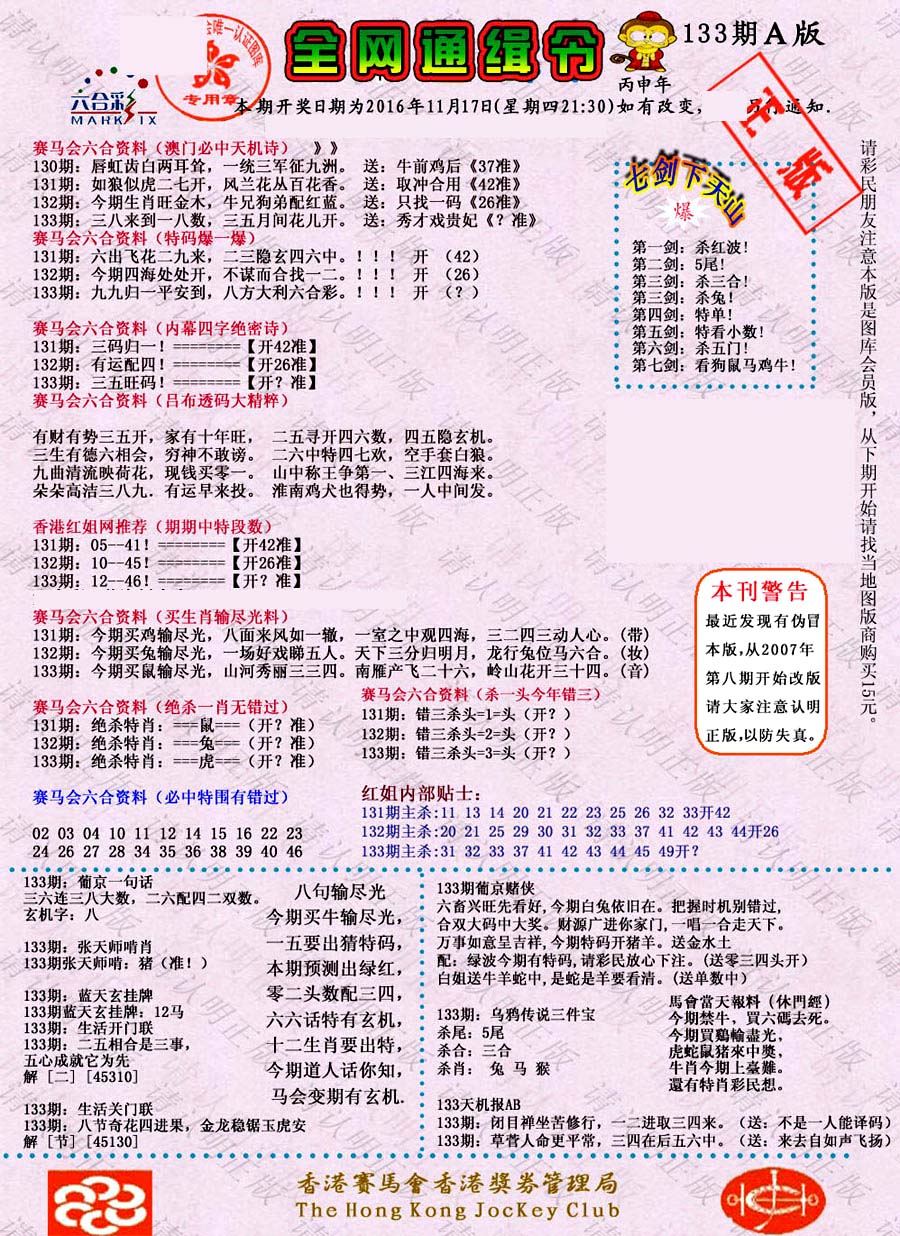 全网通缉令
133期A版
丙申年
六合彩
MARK IX
专用章
正版
本期开奖日期为2016年11月17日(星期四21:30)如有改变，
另行通知.
赛马会六合资料（澳门必中天机诗） 》》
130期：唇虹齿白两耳耸，一统三军征九洲。 送：牛前鸡后《37准》
131期：如狼似虎二七开，风兰花丛百花香。 送：取冲合用《42准》
132期：今期生肖旺金木，牛兄狗弟配红蓝。 送：只找一码《26准》
133期：三八来到一八数，三五月间花儿开。 送：秀才戏贵妃《？准》
赛马会六合资料（特码爆一爆）
131期：六出飞花二九来，二三隐玄四六中。！！！ 开 （42）
132期：今期四海处处开，不谋而合找一二。！！！ 开 （26）
133期：九九归一平安到，八方大利六合彩。！！！ 开 （？）
赛马会六合资料（内幕四字绝密诗）
131期：三码归一！========【开42准】
132期：有运配四！========【开26准】
133期：三五旺码！========【开？准】
赛马会六合资料（吕布透码大精粹）
有财有势三五开，家有十年旺， 二五寻开四六数，四五隐玄机。
三生有德六相会，穷神不敢谤。 二六中特四七欢，空手套白狼。
九曲清流映荷花，现钱买零一。 山中称王争第一、三江四海来。
朵朵高洁三八九．有运早来投。 淮南鸡犬也得势，一人中间发。
香港红姐网推荐（期期中特段数）
131期：05--41！========【开42准】
132期：10--45！========【开26准】
133期：12--46！========【开？准】
赛马会六合资料（买生肖输尽光料）
131期：今期买鸡输尽光，八面来风如一辙，一室之中观四海，三二四三动人心。(带)
132期：今期买兔输尽光，一场好戏睇五人。天下三分归明月，龙行兔位马六合。(妆)
133期：今期买鼠输尽光，山河秀丽三三四。南雁产飞二十六，岭山花开三十四。(音)
赛马会六合资料（绝杀一肖无错过）
131期：绝杀特肖：===鼠===（开？准）
132期：绝杀特肖：===兔===（开？准）
133期：绝杀特肖：===虎===（开？准）
赛马会六合资料（杀一头今年错三）
131期：错三杀头=1=头（开？）
132期：错三杀头=2=头（开？）
133期：错三杀头=3=头（开？）
赛马会六合资料（必中特围有错过）
02 03 04 10 11 12 14 15 16 22 23
24 26 27 28 34 35 36 38 39 40 46
红姐内部贴士：
131期主杀:11 13 14 20 21 22 23 25 26 32 33开42
132期主杀:20 21 25 29 30 31 32 33 37 41 42 43 44开26
133期主杀:31 32 33 37 41 42 43 44 45 49开？
七剑下天山
爆
第一剑：杀红波！
第二剑：5尾！
第三剑：杀三合！
第三剑：杀兔！
第四剑：特单！
第五剑：特看小数！
第六剑：杀五门！
第七剑：看狗鼠马鸡牛！
请彩民朋友注意本版是图库会员版，从下期开始请找当地图版商购买15元。
本刊警告
最近发现有伪冒
本版,从2007年
第八期开始改版
请大家注意认明
正版,以防失真。
133期：葡京一句话
三六连三八大数，二六配四二双数。
玄机字：八
133期：张天师啃肖
133期张天师啃：猪（准！）
133期：蓝天玄挂牌
133期蓝天玄挂牌：12马
133期：生活开门联
133期：二五相合是三事，
五心成就它为先
解 [二] [45310]
133期：生活关门联
133期：八节奇花四进果，金龙稳锯玉虎安
解 [节] [45130]
八句输尽光
今期买牛输尽光，
一五要出猜特码，
本期预测出绿红，
零二头数配三四，
六六话特有玄机，
十二生肖要出特，
今期道人话你知，
马会变期有玄机.
133期葡京赌侠
六畜兴旺先看好,今期白兔依旧在。把握时机别错过，
合双大码中大奖。财源广进你家门,一唱一合走天下。
万事如意呈吉祥,今期特码开猪羊。送金水土
配：绿波今期有特码,请彩民放心下注。(送零三四头开）
白姐送牛羊蛇中,是蛇是羊要看清。(送单数中）
133期：乌鸦传说三件宝
杀尾：5尾
杀合：三合
杀肖： 兔 马 猴
馬會當天報料（休門經）
今期禁牛、買六碼去死。
今期買鷄輸盡光，
虎蛇鼠猪來中獎，
牛肖今期上臺難。
還有特肖彩民想。
133天机报AB
133期：闭目禅坐苦修行，一二进取三四来。（送：不是一人能译码）
133期：草菅人命更平常，三四在后五六中。（送：来去自如声飞扬）
香港賽馬會香港獎券管理局
The Hong Kong JocKey Club